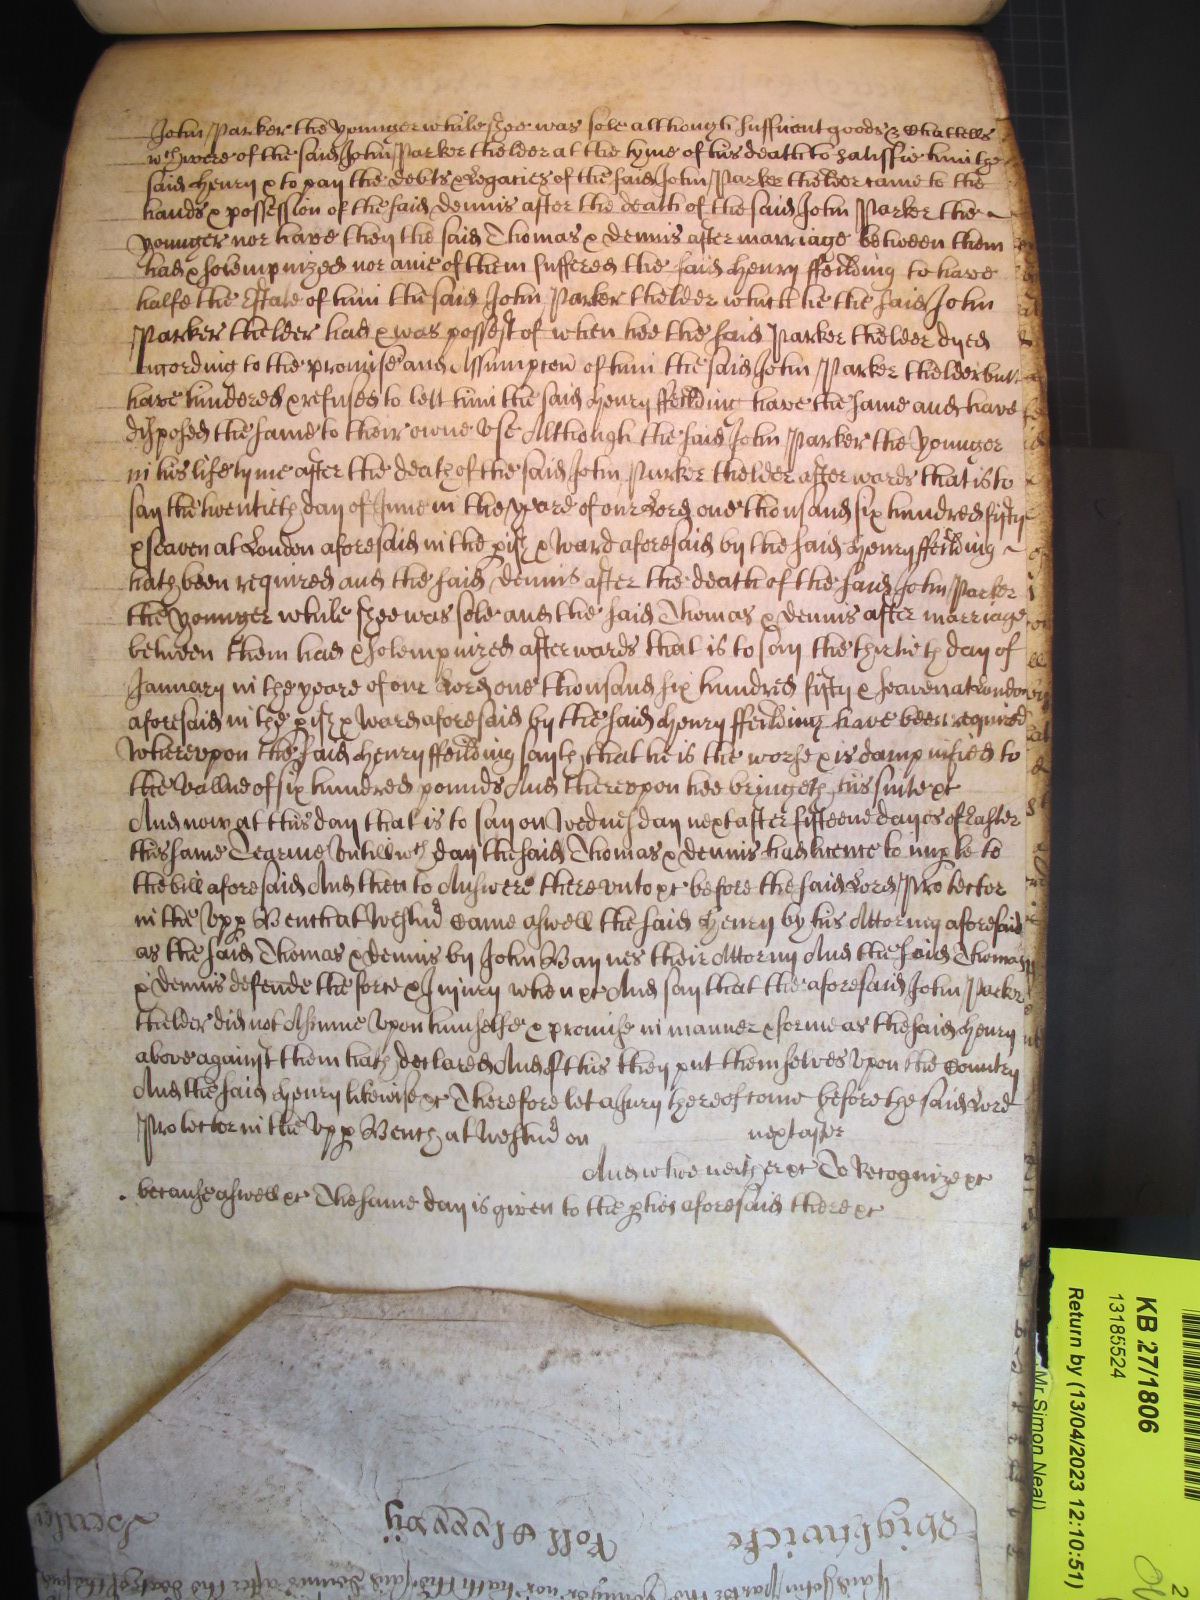 John Parker the younger while shee was sole although suffitient goods & Chattells
wch were of the said John Parker thelder at the tyme of his death to satisfie him the
said Henry & to pay the debts & Legacies of the said John Parker thelder came to the
hands & possession of the said Dennis after the death of the said John Parker the
younger nor have they the said Thomas & Dennis after marriage between them
had & solempnized nor anie of them suffered the said Henry ffeilding to have
halfe the Estate of him the said John Parker thelder which he the said John
Parker thelder had & was possest of when hee the said Parker thelder dyed
according to the promise and Assumpcon of him the said John Parker thelder but
have hindered & refused to lett him the said Henry ffeilding have the same and have
disposed the same to their owne use Although the said John Parker the younger
in his life tyme after the death of the said John Parker thelder afterwards that is to
say the twentieth day of June in the yeare of our Lord one thousand six hundred fifty
& seaven at London aforesaid in the pish & Ward aforesaid by the said Henry ffeilding
hath been required and the said Dennis after the death of the said John Parker
the younger while shee was sole and the said Thomas & Dennis after marriage
between them had & solempnized afterwards that is to say the thirtieth day of
January in the yeare of our Lord one thousand six hundred fifty & seaven at London
aforesaid in the pish & Ward aforesaid by the said Henry ffeilding have been required
Whereupon the said Henry ffeilding sayth that he is the worse & is dampnified to
the vallue of six hundred pounds And thereupon hee bringeth his suite &c
And now at this day that is to say on Wednesday next after fifteene dayes of Easter
this same Tearme untill wch day the said Thomas & Dennis had licence to imple to
the bill aforesaid And then to Answere thereunto &c before the said Lord Protector
in the Upp Bench at Westmd Came aswell the said Henry by his Attorny aforesaid
as the said Thomas & Dennis by John Baynes their Attorny And the said Thomas
& Dennis defende the force & Injury when &c And say that the aforesaid John Parker
thelder did not Assume upon himselfe & promise in manner & forme as the said Henry
above against them hath declared And of this they put themselves upon the Country
And the said Henry likewise &c Therefore let a Jury thereof come before the said Lord
Protector in the Upp Bench at Westmd on next after
And who neither &c To Recognize &c
because aswell &c The same day is given to the pties aforesaid there &c
KB 27/1806
13185524
Return by (13/04/2023 12:10:51)
Mr Simon Neal)